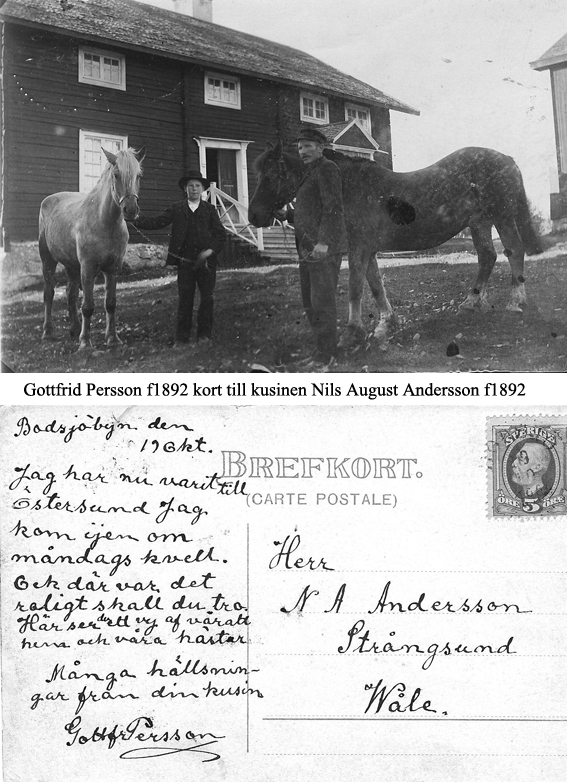 Gottfrid Persson f1892 kort till kusinen Nils August Andersson f1892
Bodsjöbyn den
19 Okt.
Jag har nu varit till
Östersund Jag
kom ijen om
måndags kvell.
Ock där var det
roligt skall du tro.
Här ser du ett vy af våratt
hem och våra hästar
Många hällsnin-
gar från din kusin
Gottfr Persson
BREFKORT.
(CARTE POSTALE)
SVERIGE
5
ÖRE
ÖRE
Herr
N A Andersson
Strångsund
Wåle.